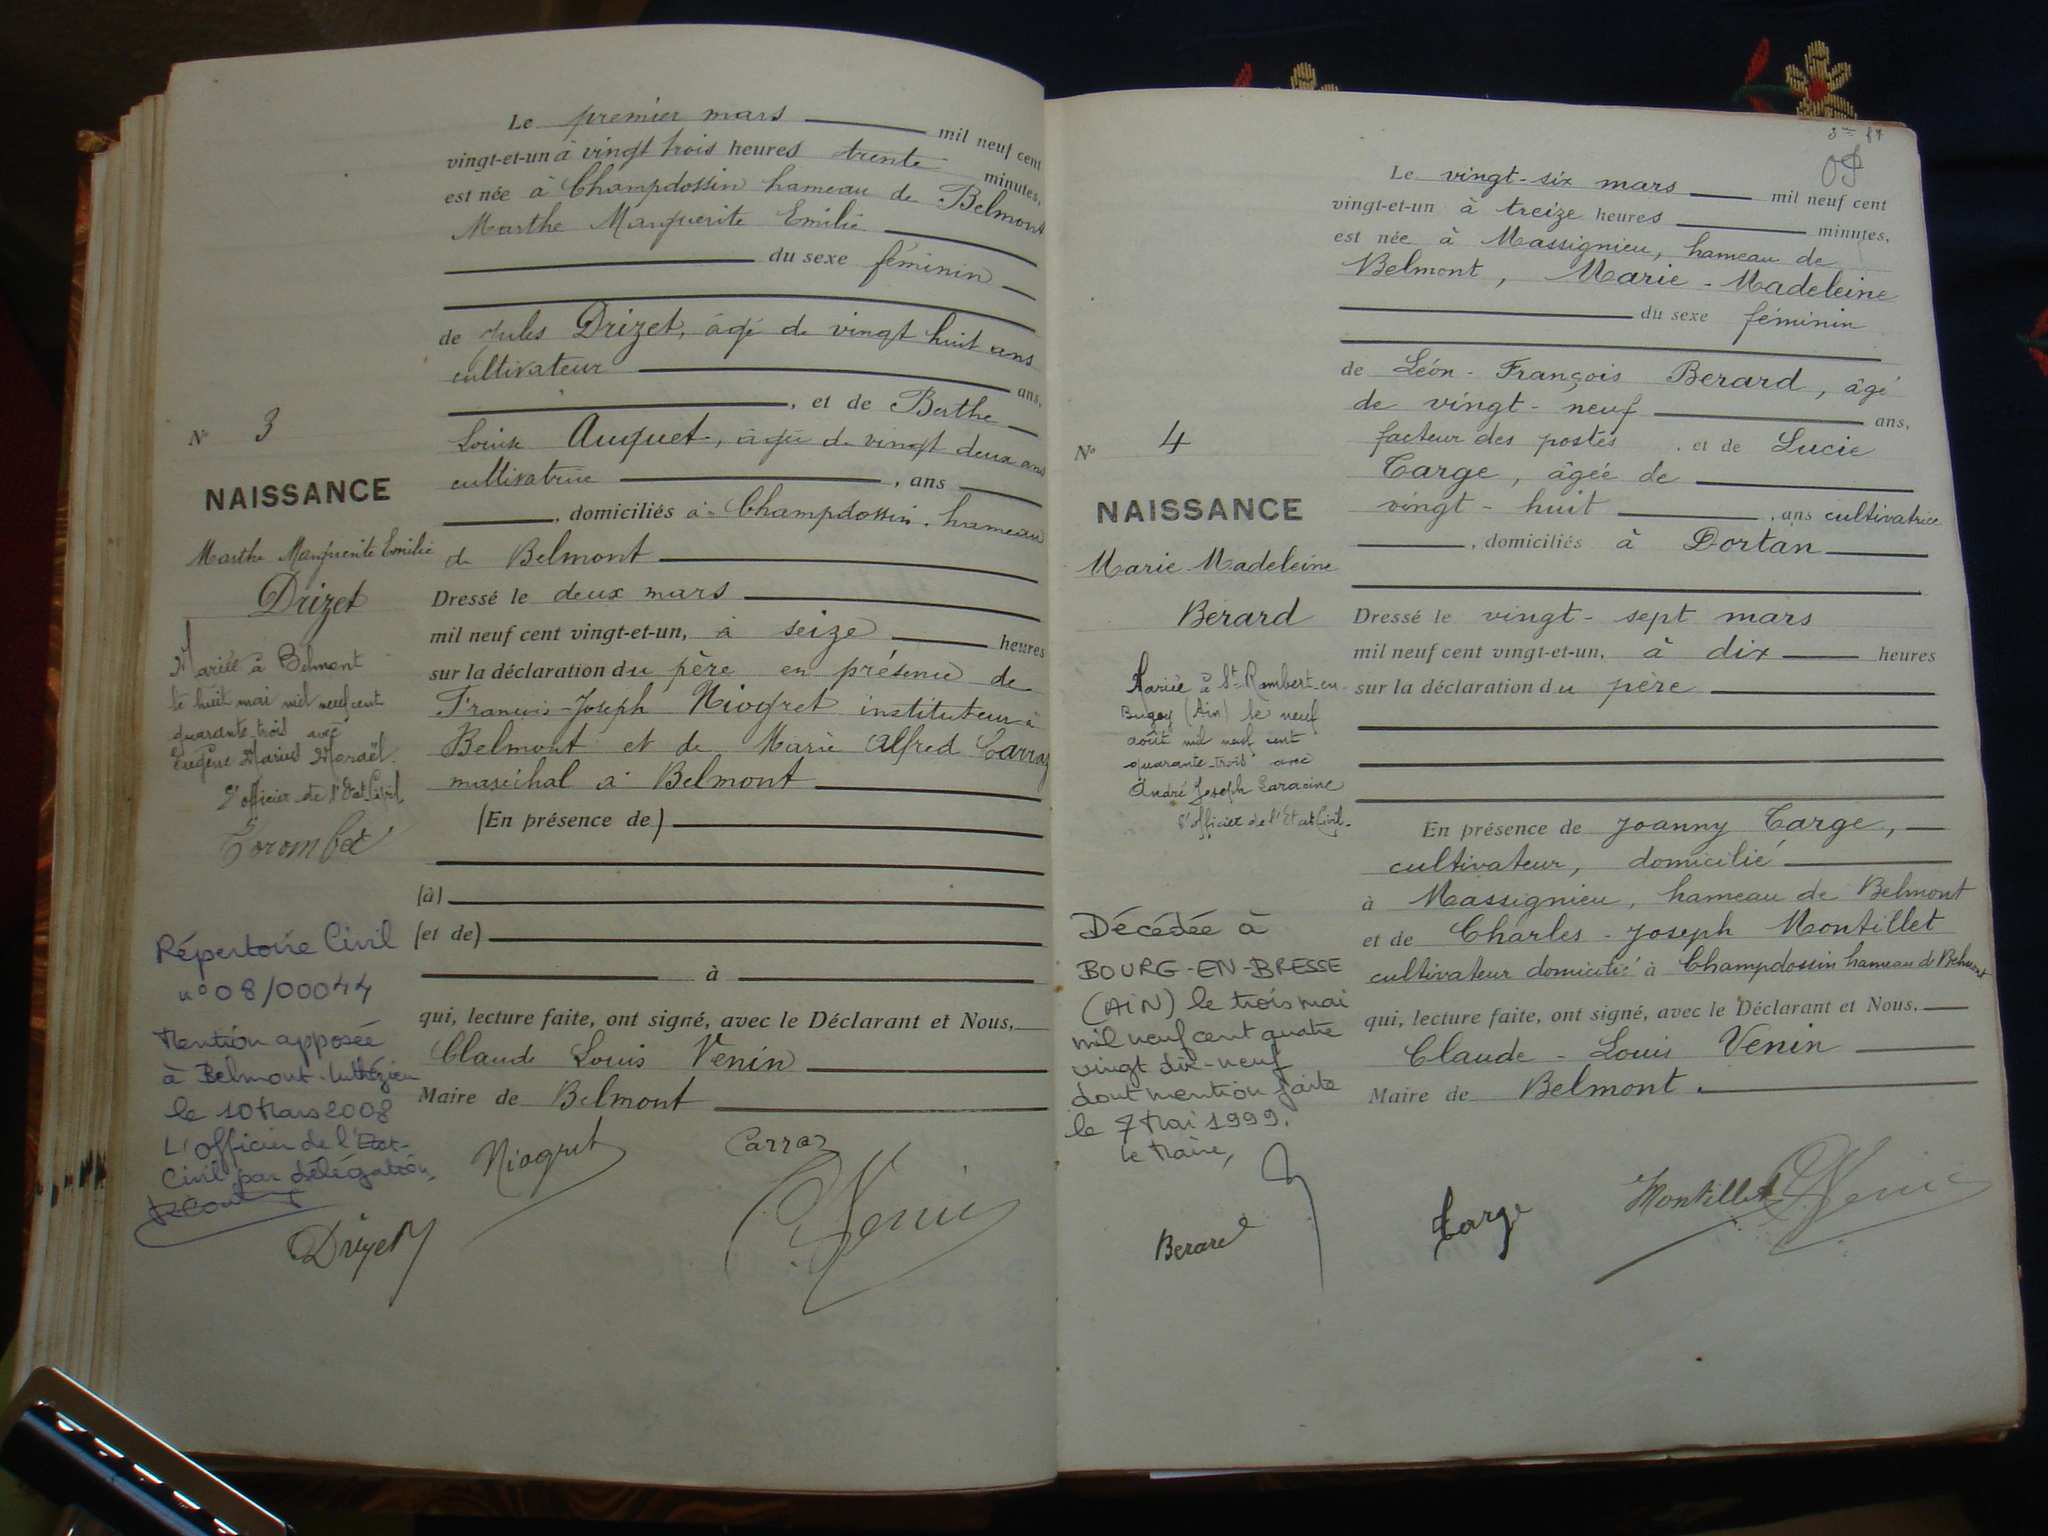 Le premier mars mil neuf cent
vingt-et-un à vingt trois heures trente minutes,
est née à Champdossin hameau de Belmont
Marthe Marguerite Emilie
du sexe féminin
de Jules Drizet, âgé de vingt huit ans
cultivateur ans,
, et de Berthe
Louise Auguet, âgée de vingt deux ans
cultivatrice , ans
, domiciliés à Champdossin, hameau
de Belmont
Dressé le deux mars
mil neuf cent vingt-et-un, à seize heures
sur la déclaration du père en présence de
François-Joseph Niogret instituteur à
Belmont et de Marie Alfred Carraz
maréchal à Belmont
(En présence de)
(à)
(et de)
à
qui, lecture faite, ont signé, avec le Déclarant et Nous,
Claude Louis Venin
Maire de Belmont
Niogret Carraz
Drizet Venin
N° 3
NAISSANCE
Marthe Marguerite Emilie
Drizet
Mariée à Belmont
le huit mai mil neuf cent
quarante-trois avec
Eugène Marius
L'officier de l'Etat-Civil
Répertoire Civil
n° 08/00044
Mention apposée
à Belmont-Luthézieu
le 10 Mars 2008
L'officier de l'Etat-
Civil par délégation,
Le vingt-six mars mil neuf cent
vingt-et-un à treize heures minutes,
est née à Massignieu, hameau de
Belmont, Marie-Madeleine
du sexe féminin
de Léon-François Berard, âgé
de vingt-neuf ans,
facteur des postes, et de Lucie
Targe, âgée de
vingt-huit , ans cultivatrice
, domiciliés à Dortan
Dressé le vingt-sept mars
mil neuf cent vingt-et-un, à dix heures
sur la déclaration du père
En présence de Joanny Targe,
cultivateur, domicilié
à Massignieu, hameau de Belmont
et de Charles-Joseph Montillet
cultivateur domicilié à Champdossin hameau de Belmont
qui, lecture faite, ont signé, avec le Déclarant et Nous,
Claude-Louis Venin
Maire de Belmont.
Berard Targe Montillet Venin
N° 4
NAISSANCE
Marie-Madeleine
Berard
Mariée à St-Rambert-en-
Bugey (Ain) le neuf
août mil neuf cent
quarante-trois avec
André Joseph
L'officier de l'Etat-Civil
Décédée à
BOURG-EN-BRESSE
(AIN) le trois mai
mil neuf cent quatre
vingt dix-neuf
dont mention faite
le 7 Mai 1999.
Le Maire,